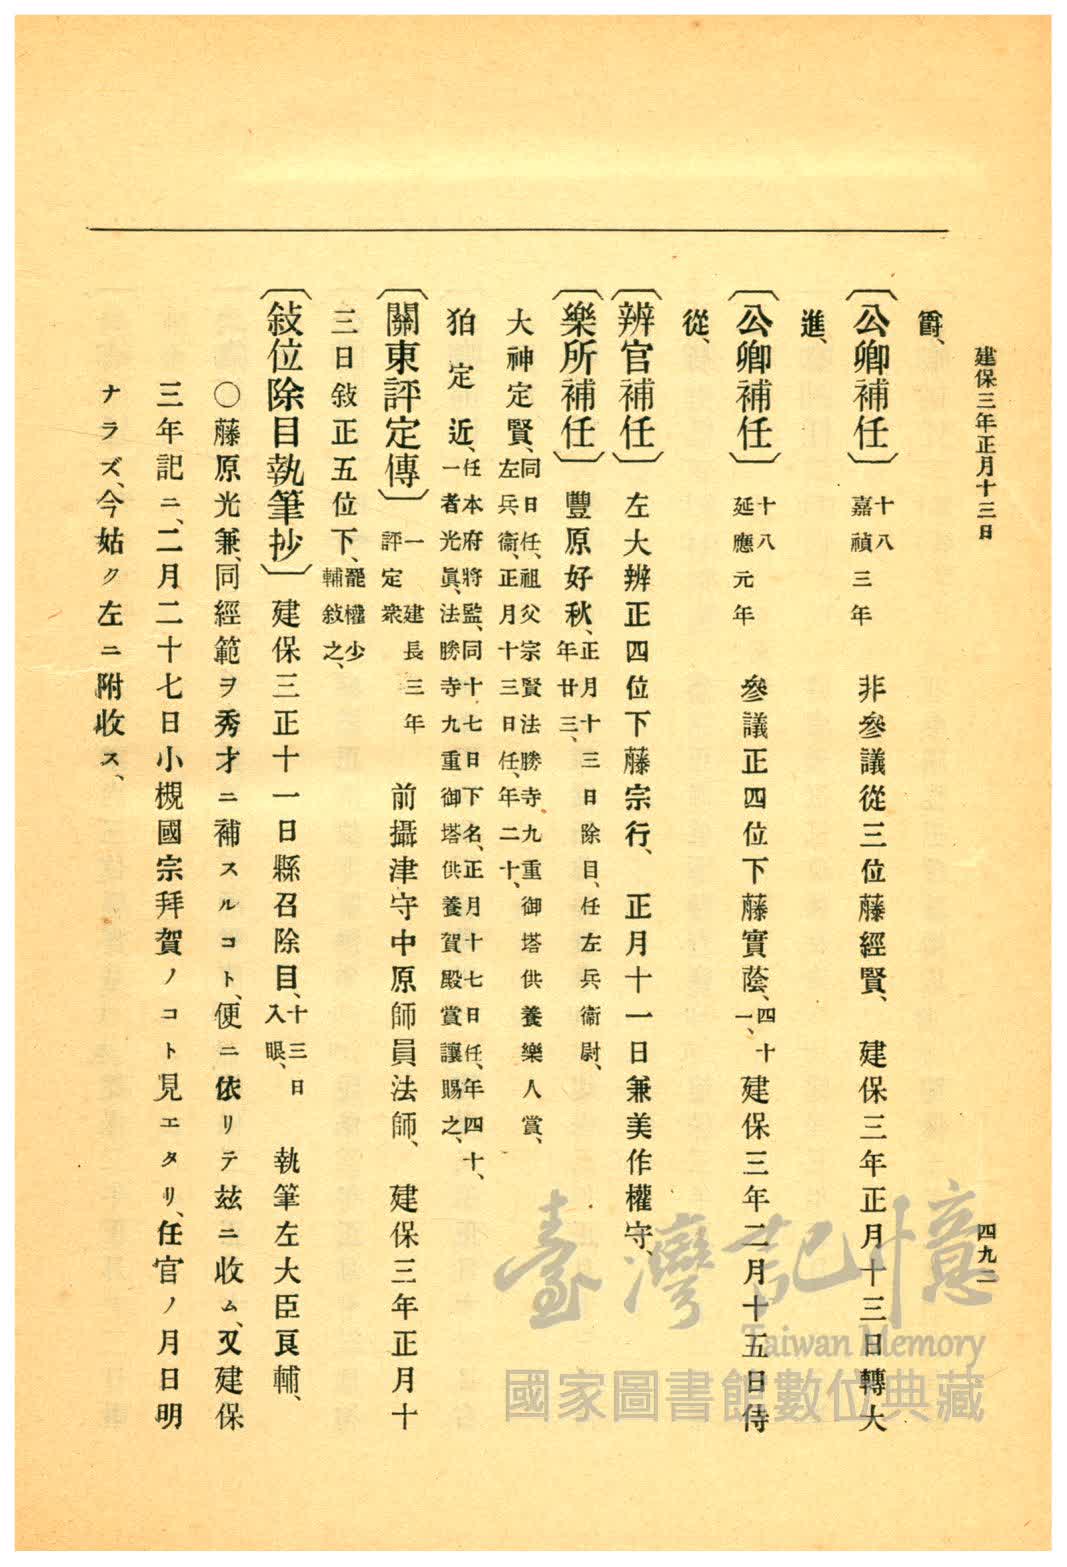 建保三年正月十三日
四九二
爵、
〔公卿補任〕十八嘉禎三年　非參議從三位藤經賢、　建保三年正月十三日轉大
進、
〔公卿補任〕十八延應元年　參議正四位下藤實蔭、四十一、建保三年二月十五日侍
從、
〔辨官補任〕　左大辨正四位下藤宗行、　正月十一日兼美作權守、
〔樂所補任〕　豐原好秋、正月十三日除目、任左兵衞尉、年廿三、
大神定賢、同日任、祖父宗賢法勝寺九重御塔供養樂人賞、左兵衞、正月十三日任、年二十、
狛定近、任本府將監、同十七日下名、正月十七日任、年四十、一者光眞、法勝寺九重御塔供養賀殿賞讓賜之、
〔關東評定傳〕一　建長三年評定衆　前攝津守中原師員法師、　建保三年正月十
三日敍正五位下、罷權少輔敍之、
〔敍位除目執筆抄〕　建保三正十一日縣召除目、十三日入眼、　執筆左大臣良輔、
〇藤原光兼、同經範ヲ秀才ニ補スルコト、便ニ依リテ玆ニ收ム、又建保
三年記ニ、二月二十七日小槻國宗拜賀ノコト見エタリ、任官ノ月日明
ナラズ、今姑ク左ニ附收ス、
臺灣記憶
Taiwan Memory
國家圖書館數位典藏